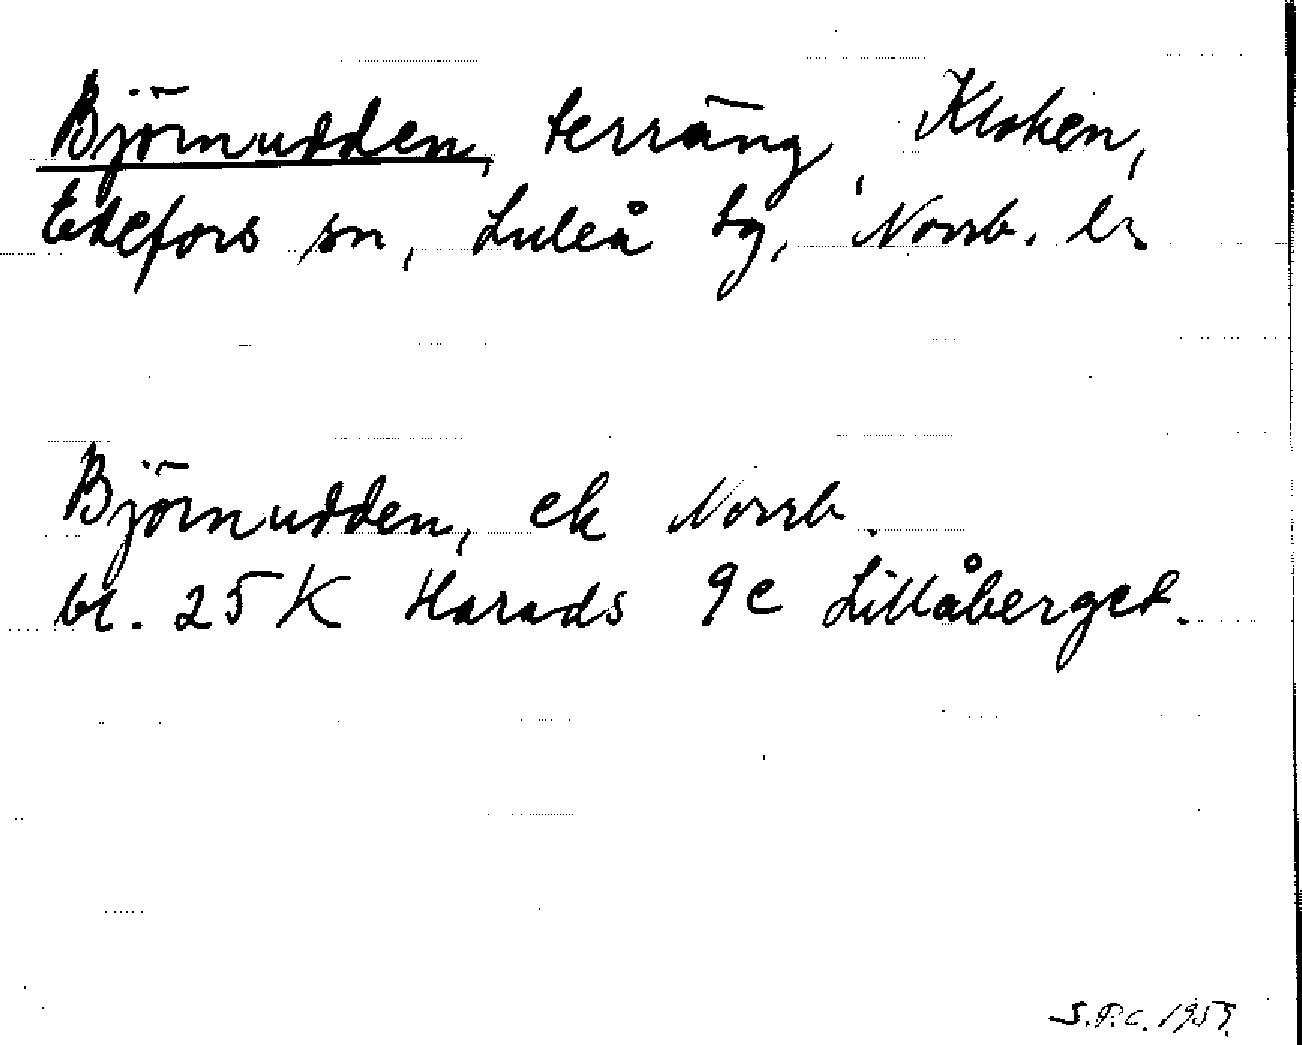 Björnudden, terräng, Kloken,
Edefors sn, Luleå tg, Norrb. ln
Björnudden, ek Norrb.
bl. 25 K Harads 9c Lillåberget.